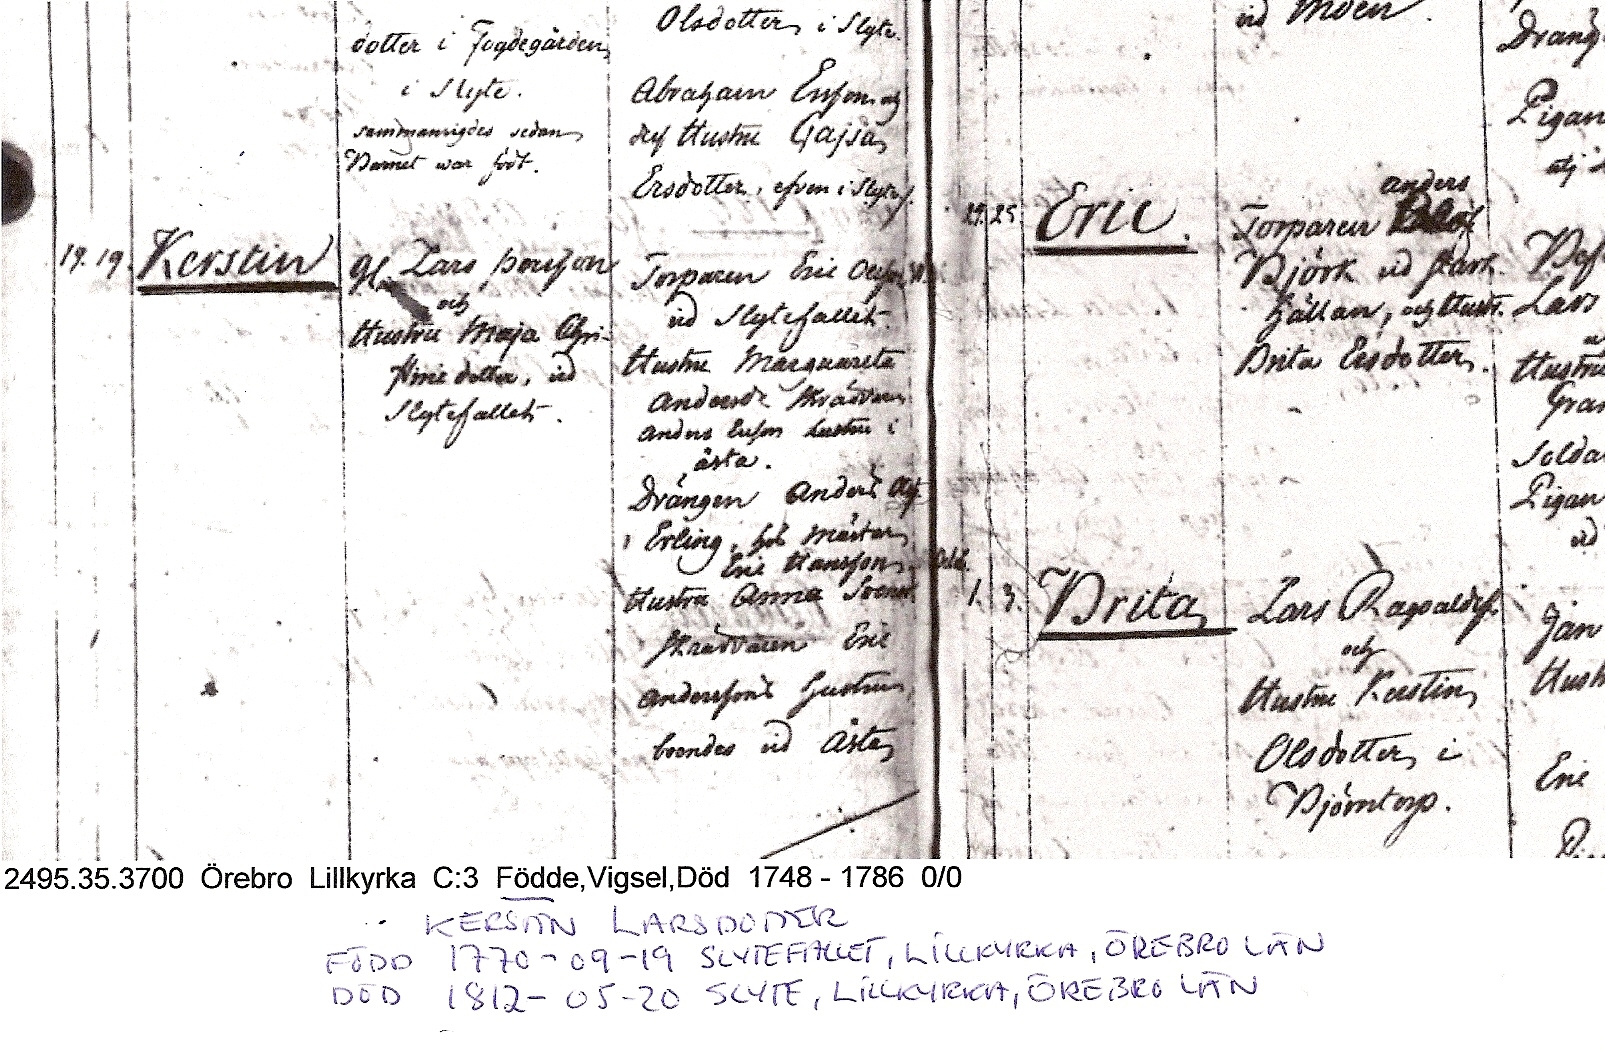 dotter i Fogdegården
i Slyte.
sedan
Barnet war född.
Olsdotter i Slyte.
Abraham Ersson och
des Hustru Cajsa
Ersdotter, efven i Slyte
19. 19. Kerstin
Gl. Lars Persson
och
Hustru Maja Chri-
stine dotter, vid
Slytefallet.
Torparen Eric
vid Slytefallet.
Hustru Margareta
Andersdr Skräddaren
Anders Ersson hustru i
Åsta.
Drängen Anders
Erling, hos
Eric Hansson
Hustru Anna
Skräddaren Eric
Anderssons hustru
boendes vid Åsta
vid Moen.
25. Eric
Anders
Torparen
Björk vid
hällan, och Hustr.
Brita Ersdotter.
1. 3. Brita
Lars Ragvaldss.
och
Hustru Kerstin
Olsdotter i
Björntorp.
Dräng
Pigan
Lars
Hustru
Gran
Solda
Pigan
vid
Jan
Hust
Eric
2495.35.3700 Örebro Lillkyrka C:3 Födde,Vigsel,Död 1748 - 1786 0/0
KERSTIN LARSDOTTER
FÖDD 1770-09-19 SLYTEFALLET, LILLKYRKA, ÖREBRO LÄN
DÖD 1812-05-20 SLYTE, LILLKYRKA, ÖREBRO LÄN